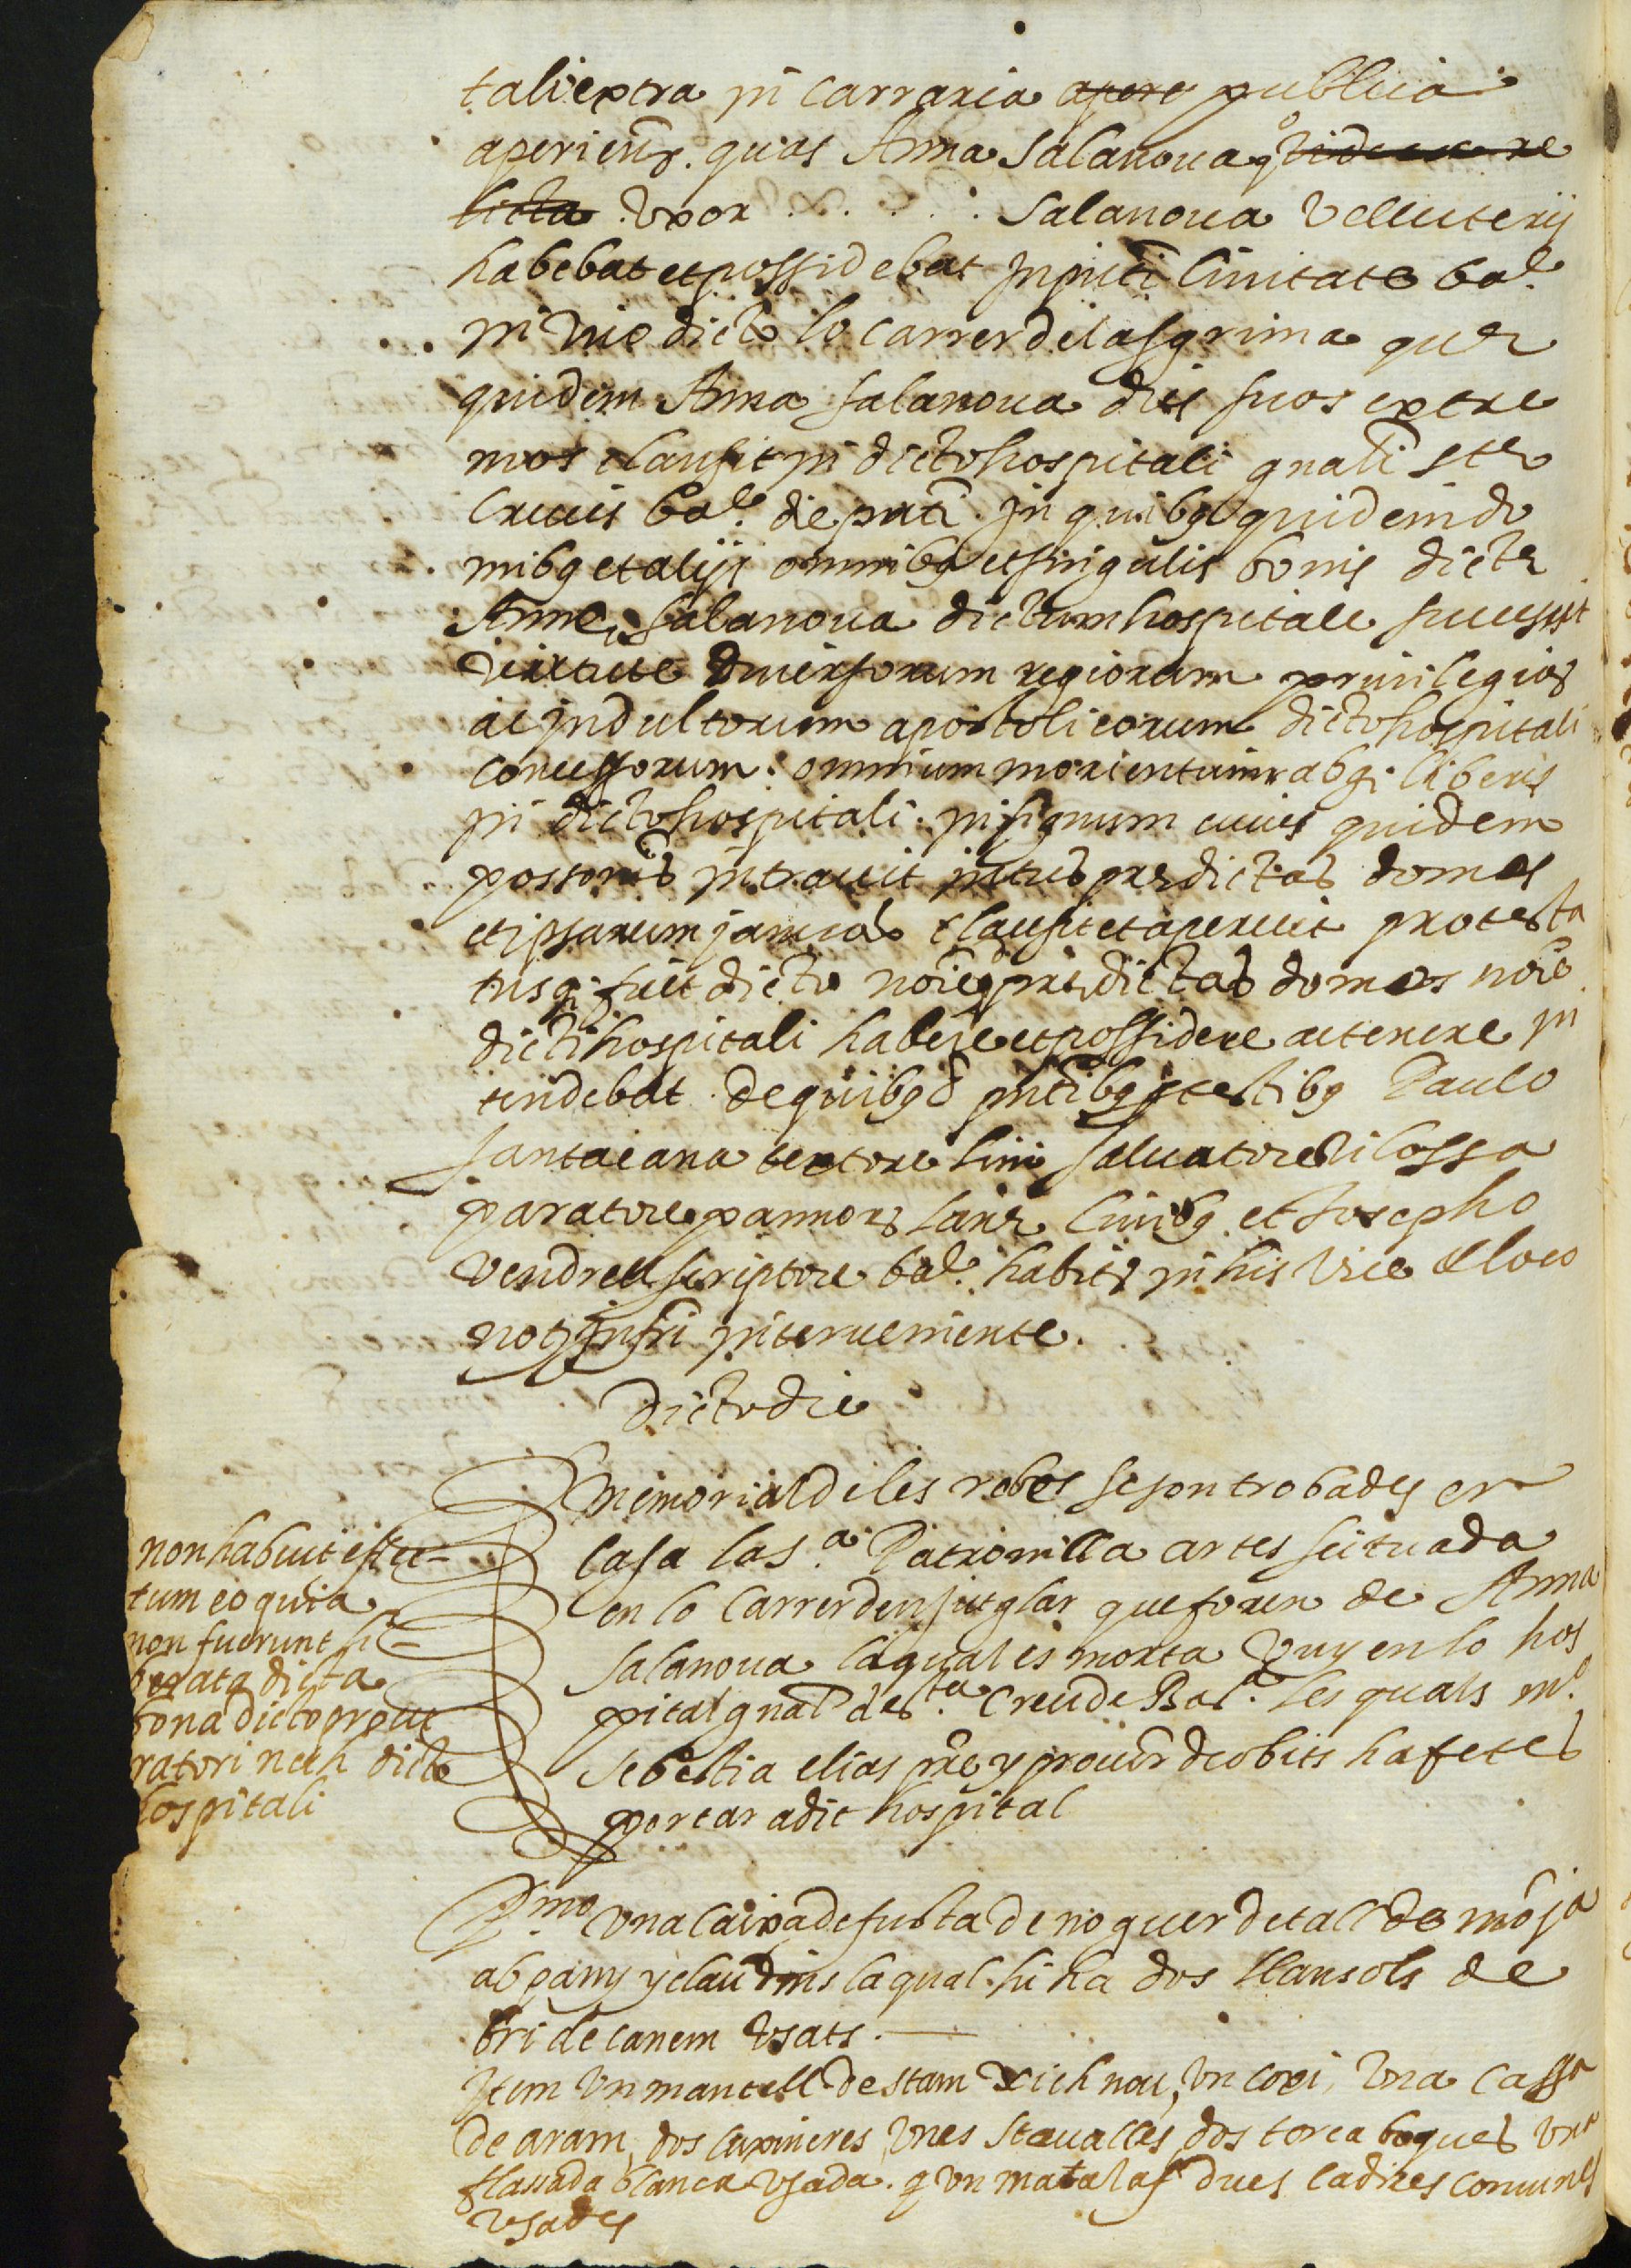 tali extra in carraria apere publica
aperieñ. quas Anna Salanoua q° vidua re
licta vxor . . . . . Salanoua velluterij
habebat et possidebat in pnti Ciuitate bar.
in vico dicto lo carrer de la sgrima que
quidem Anna Salanoua dies suos extre
mos clausit in dicto hospitali gnali ste
Crucis bar. die pnti. In quibq quidem do
mibq et alijs omnibq et singulis bonis dicte
Anne Salanoua dictum hospitale successit
virtute diuersorum regiorum priuilegior
ac indultorum apostolicorum dicto hospitali
concessorum. omnium morientium absq. liberis
in dicto hospitali. in signum cuius quidem
possonis intrauit intus predictas domos
et ipsarum januas clausit et aperuit protesta
tusq. fuit dicto noie q predictas domos noie
dicti hospitali habere et possidere ac tenere in
tendebat. De quibq pntibq testibq Paulo
Santacana textore lini Saluatore Vilossa
paratore pannor lane Ciuibq et Josepho
Vendrell scriptore bar. habitr in his vice et loco
notj infri interueniente.
Dicto die
Memorial de les robes se son trobades en
casa la s.ª Patronilla artes scituada
en lo carrer den Jutglar que foren de Anna
Salanoua la qual es morta vuy en lo hos
pital gnal de s.ta Creu de Bar.ª les quals m.º
Sebestia elias pre y procur de obits ha fetes
portar a dit hospital
non habuit effec-
tum eo quia
non fuerunt li-
berata dicta
bona dicto procu
ratori nech dicto
hospitali
P.mo vna caixa de fusta de noguer de tall de moja
ab pany y clau dins la qual hi ha dos llansols de
bri de canem vsats.
Item vn mantell de stam xich nou, vn coxi, vna cassa
de aram, dos cuxineres vnes stoualles dos torcaboques vna
flassada blanca vsada. q vn matalas dues cadires comunes
vsades